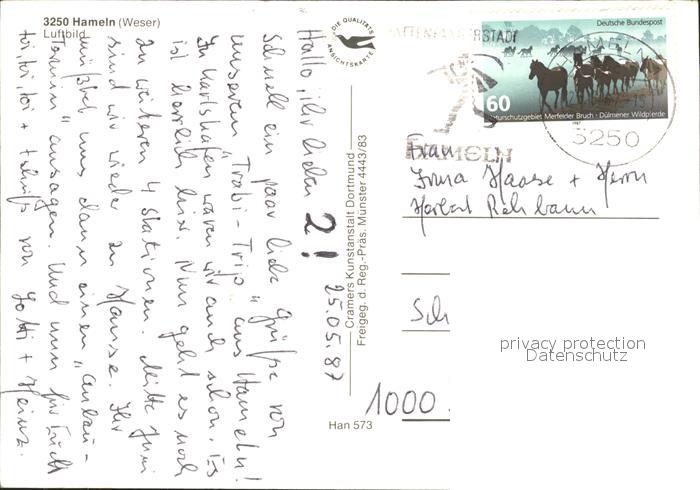 3250 Hameln (Weser)
Luftbild
DIE QUALITÄTS
ANSICHTSKARTE
Hallo, ihr lieben 2!
25.05.87
schnell ein paar liebe Grüße von
unserem "Trabi-Trip" aus Hameln!
In Karlshafen waren wir auch schon. Es
ist herrlich hier. Nun geht es noch
zu weiteren 4 Stationen. Mitte Juni
sind wir wieder zu Hause. Ihr
müßtet uns dann einen "Anlau-
Termin" ansagen. Und nun für Euch
toi, toi, toi + tschüß von Lotti + Heinz.
Cramers Kunstanstalt Dortmund
Freigeg. d. Reg.-Präs. Münster 4443/83
Han 573
RATTENFÄNGERSTADT
HAMELN
3250
Deutsche Bundespost
60
Naturschutzgebiet Merfelder Bruch · Dülmener Wildpferde
1987
Frau
Irma Haase + Herrn
Herbert Rehbann
Sch
1000
privacy protection
Datenschutz